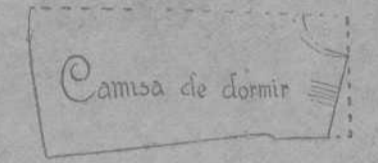 Camisa de dormir